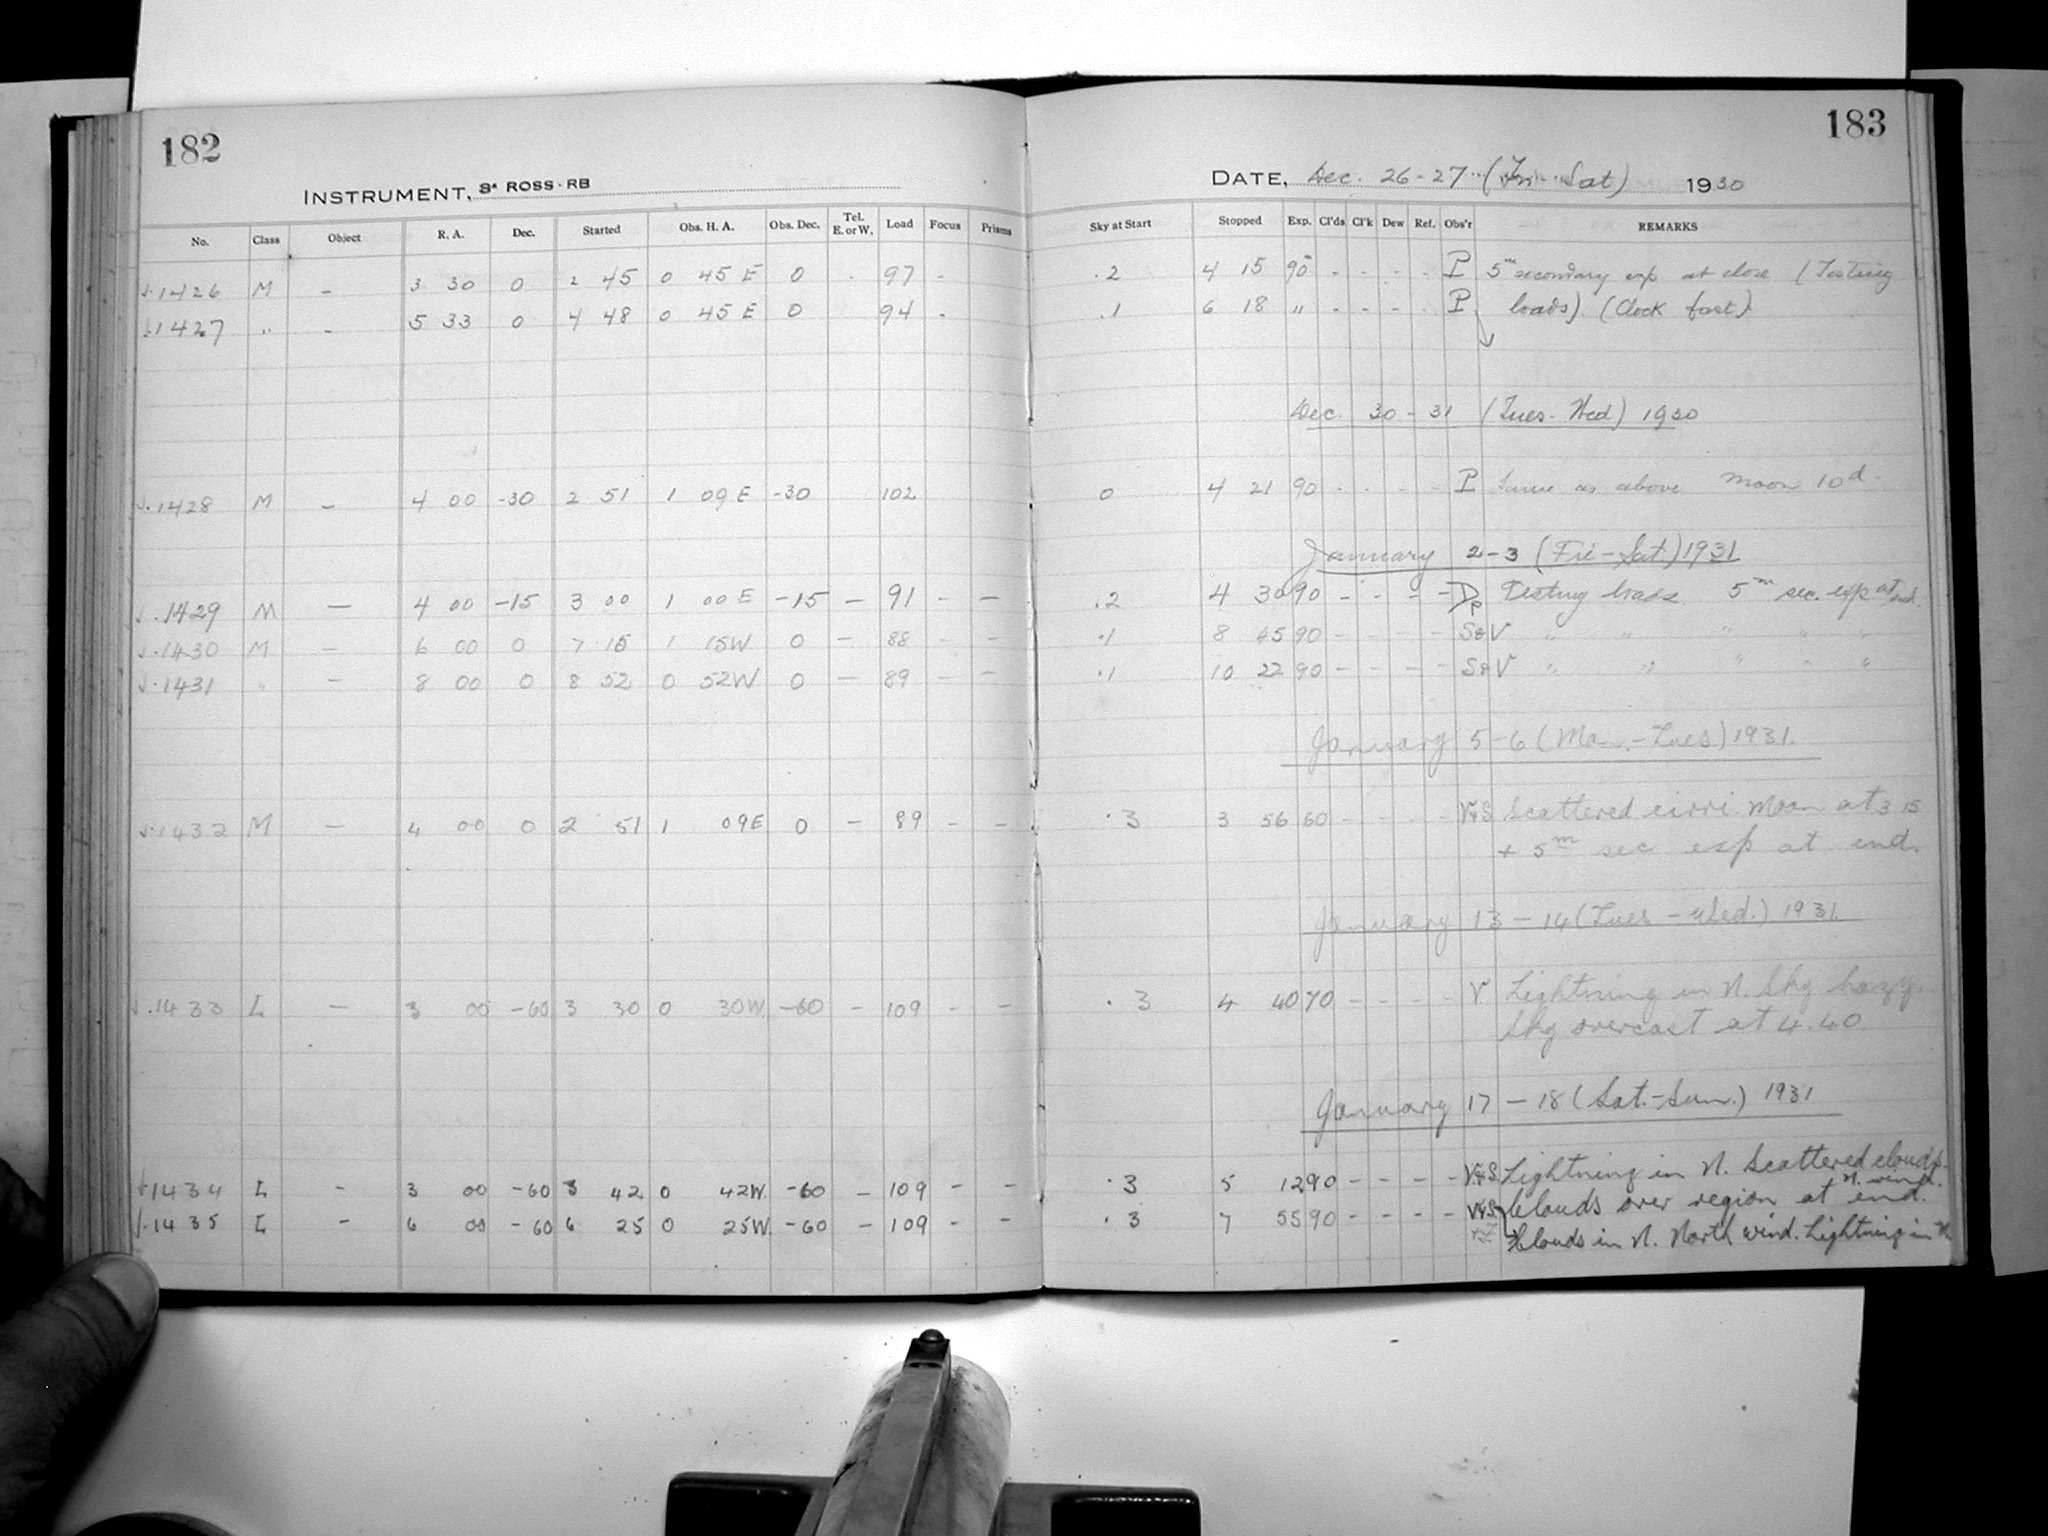 182
INSTRUMENT, 3" ROSS-RB
No. Class Object R. A. Dec. Started Obs. H. A. Obs. Dec. Tel. E. or W. Load Focus Prisms
1426 M - 3 30 0 2 45 0 45 E 0 97 -
1427 " - 5 33 0 4 48 0 45 E 0 94 -
1428 M - 4 00 -30 2 51 1 09 E -30 102
1429 M - 4 00 -15 3 00 1 00 E -15 - 91 - -
1430 M - 6 00 0 7 15 1 15W 0 - 88 - -
1431 " - 8 00 0 8 52 0 52W 0 - 89 - -
1432 M - 4 00 0 2 51 1 09E 0 - 89 - -
1433 L - 3 00 -60 3 30 0 30W -60 - 109 - -
1434 L - 3 00 -60 3 42 0 42W. -60 - 109 - -
1435 L - 6 00 -60 6 25 0 25W. -60 - 109 - -
183
DATE, Dec. 26-27 (Fri-Sat) 1930
Sky at Start Stopped Exp. Cl'ds Cl'k Dew Ref. Obs'r REMARKS
.2 4 15 90 - - - - P 5m secondary exp at close (Testing
.1 6 18 " - - - - P loads). (Clock fast)
Dec. 30-31 (Tues-Wed) 1930
0 4 21 90 - - - - P Same as above Moon 10d.
January 2-3 (Fri-Sat.) 1931
.2 4 30 90 - - - - Testing loads 5m sec. exp at end.
.1 8 45 90 - - - - S&V " " " " "
.1 10 22 90 - - - - S&V " " " " "
January 5-6 (Mon.-Tues.) 1931.
.3 3 56 60 - - - - V&S Scattered cirri Moon at 3 15
+ 5m sec exp at end.
January 13-14 (Tues-Wed.) 1931.
.3 4 40 70 - - - - V Lightning in N. Sky hazy.
Sky overcast at 4.40.
January 17-18 (Sat.-Sun.) 1931
.3 5 12 90 - - - - V&S Lightning in N. Scattered clouds.
N. wind.
.3 7 55 90 - - - - V&S Clouds over region at end.
Clouds in N. North wind. Lightning in N